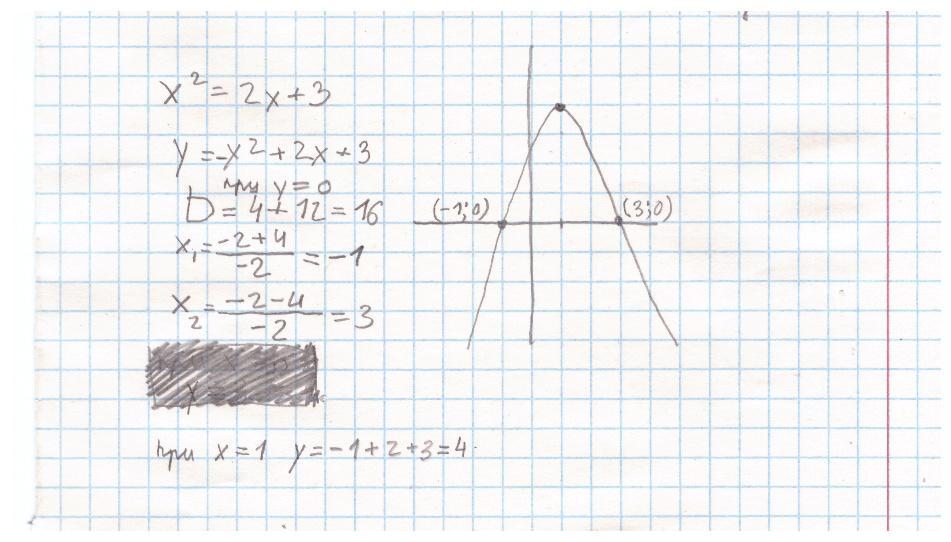 x² = 2x + 3
y = -x² + 2x + 3
при y = 0
D = 4 + 12 = 16
x₁ = (-2+4)/(-2) = -1
x₂ = (-2-4)/(-2) = 3
при x = 1 y = -1 + 2 + 3 = 4
(-1; 0)
(3; 0)